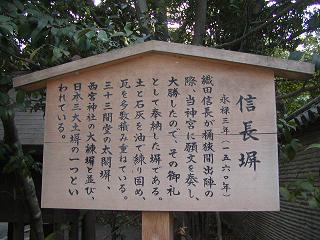 信長塀
永禄三年(一五六〇年)
織田信長が桶狭間出陣の
際、当神宮に願文を奏し
大勝したので、その御礼
として奉納した塀である。
土と石灰を油で練り固め、
瓦を多数積み重ねている。
三十三間堂の太閤塀、
西宮神社の大練塀と並び、
日本三大土塀の一つとい
われている。